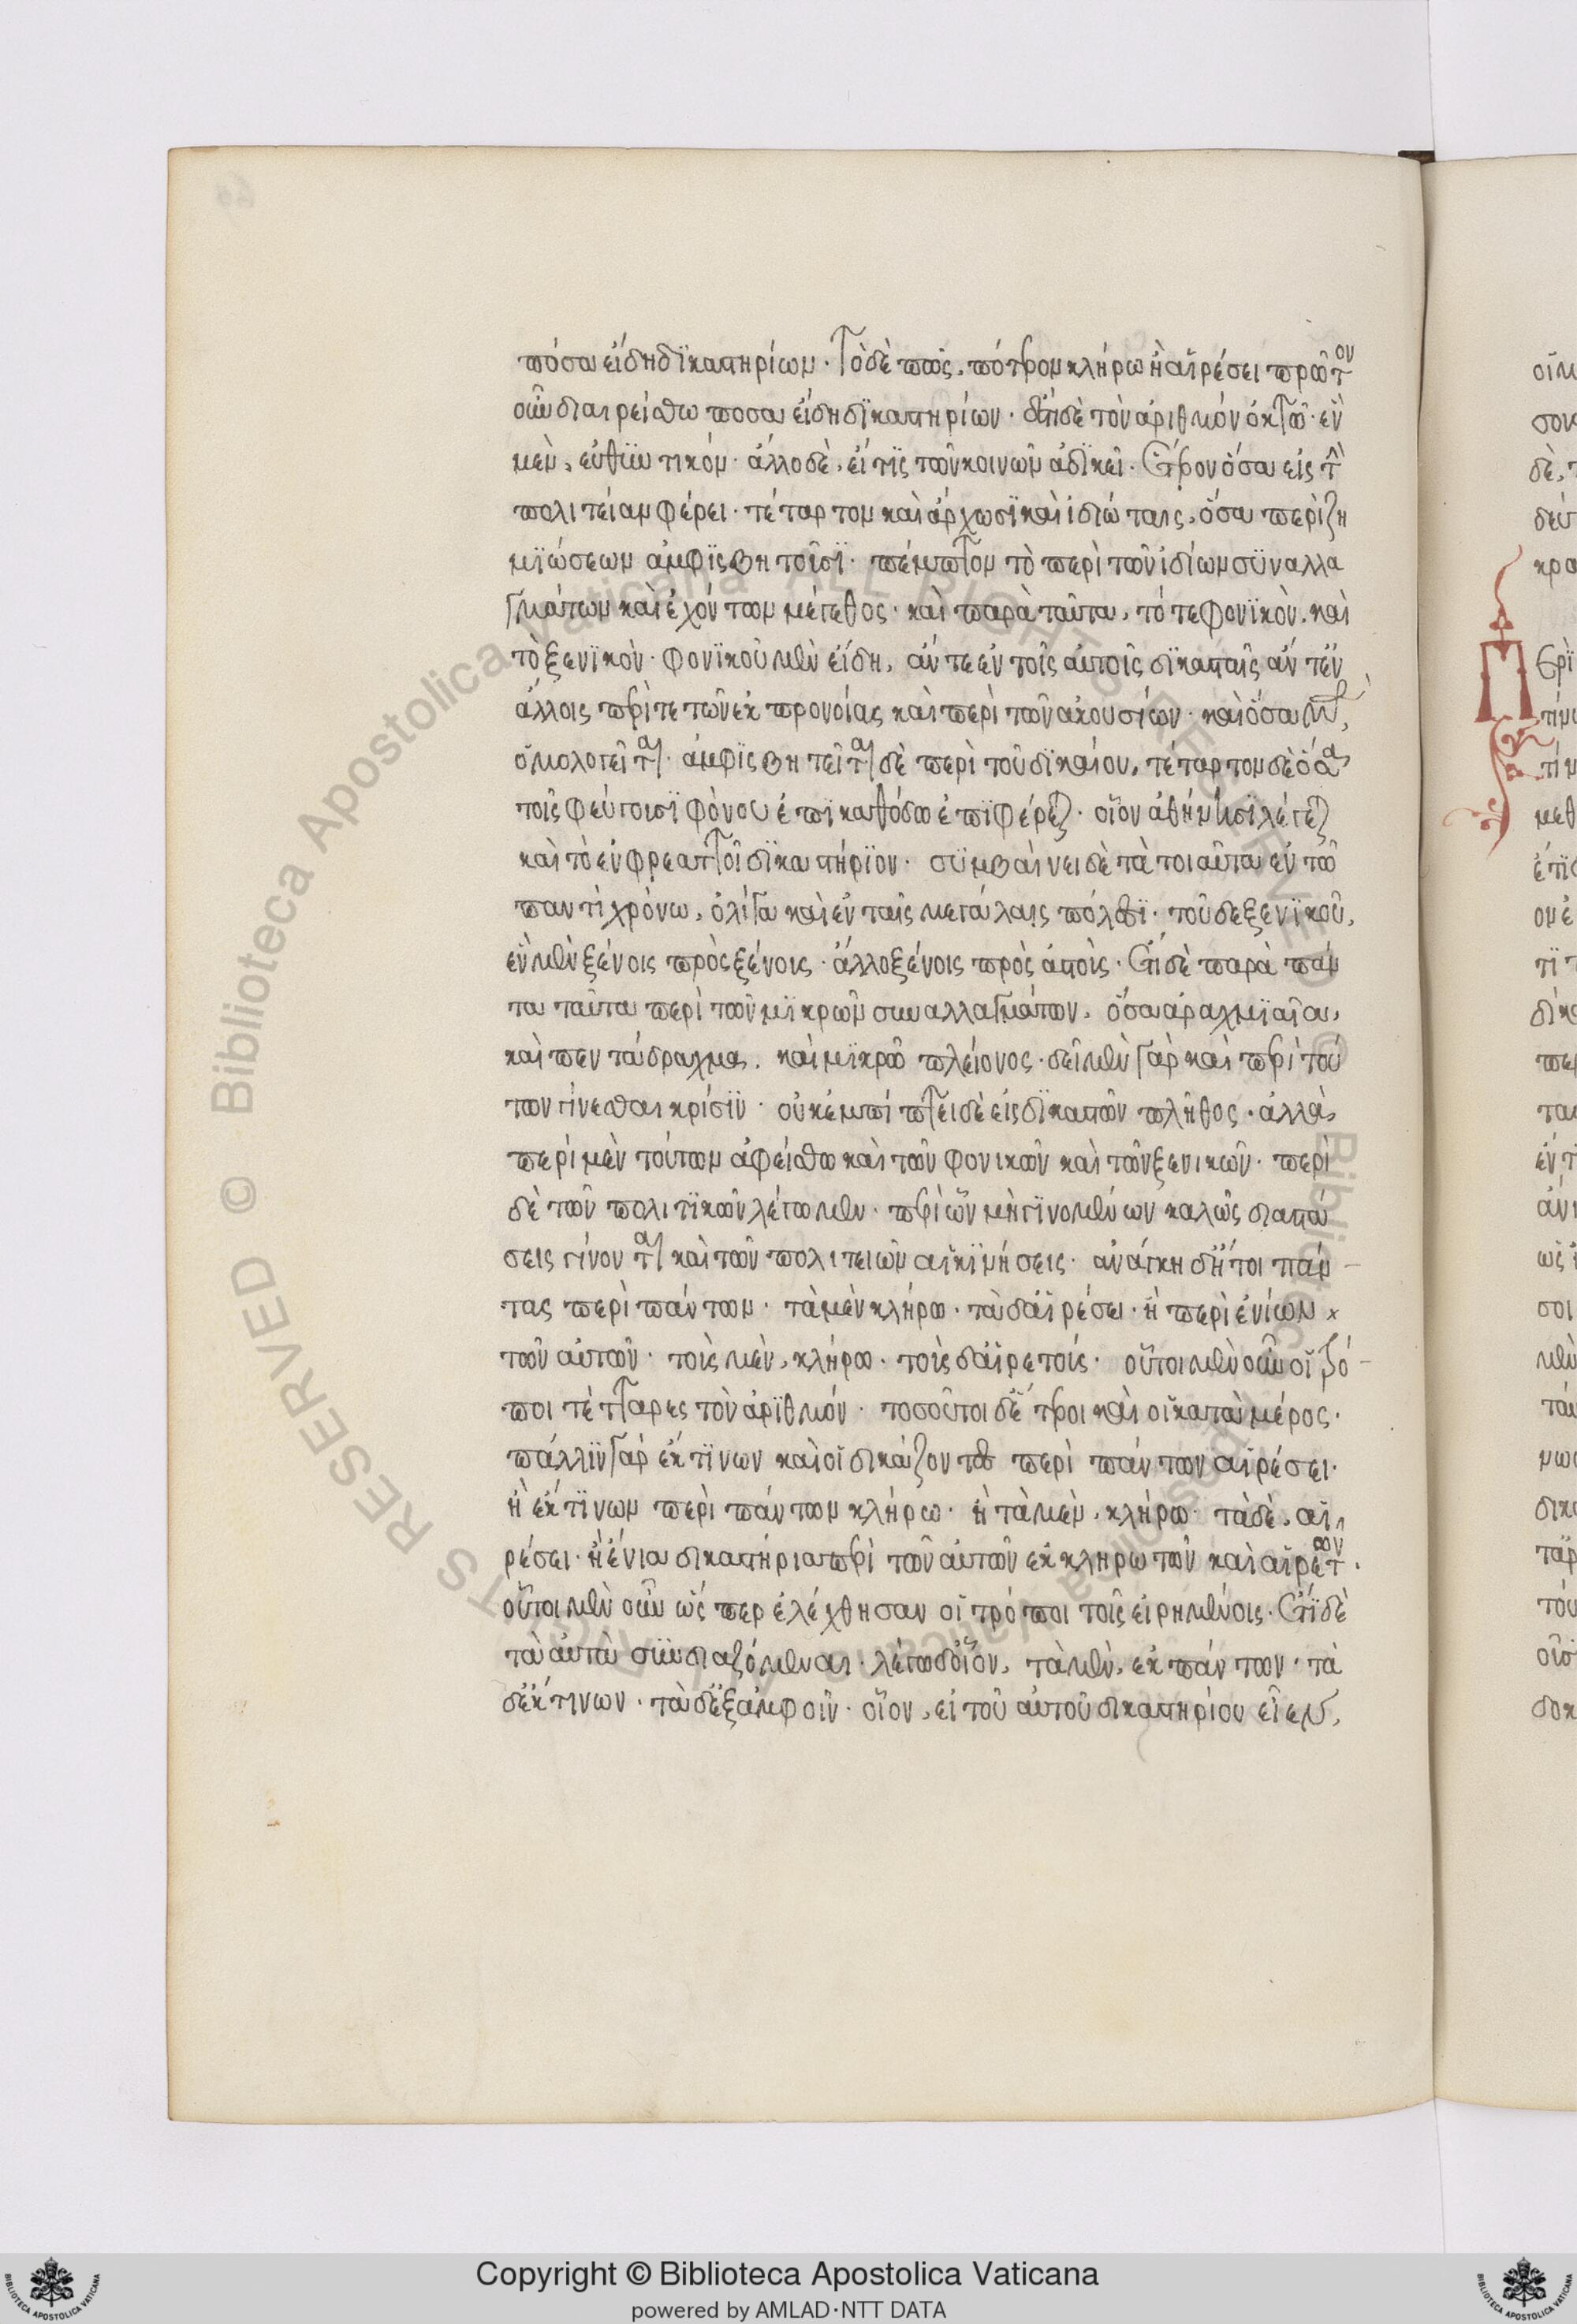 πόσα εἴδη δικαστηρίων· τὸ δὲ πῶς, πότερον κλήρω ἢ αἱρέσει πρῶτον
οὖν διαιρείσθω πόσα εἴδη δικαστηρίων· ἔστι δὲ τὸν ἀριθμὸν ὀκτώ· ἓν
μὲν, εὐθυντικόν· ἄλλο δὲ, εἴ τις τῶν κοινῶν ἀδικεῖ· ἕτερον ὅσα εἰς τὴν
πολιτείαν φέρει· τέταρτον καὶ ἄρχωσι καὶ ἰδιώταις, ὅσα περὶ ζη
μιώσεων ἀμφισβητοῦσι· πέμπτον τὸ περὶ τῶν ἰδίων συναλλα
γμάτων καὶ ἐχόντων μέγεθος· καὶ παρὰ ταῦτα, τό τε φονικὸν, καὶ
τὸ ξενικὸν· φονικοῦ μὲν εἴδη, ἄν τε ἐν τοῖς αὐτοῖς δικασταῖς ἄν τ' ἐν
ἄλλοις περί τε τῶν ἐκ προνοίας καὶ περὶ τῶν ἀκουσίων· καὶ ὅσα μὲν,
ὁμολογεῖται· ἀμφισβητεῖται δὲ περὶ τοῦ δικαίου, τέταρτον δὲ ὅσα
τοῖς φεύγουσι φόνου ἐπὶ καθόδω ἐπιφέρεται· οἷον ἀθήνησι λέγεται
καὶ τὸ ἐν φρεαττοῖ δικαστήριον· συμβαίνει δὲ τὰ τοιαῦτα ἐν τῶ
παντὶ χρόνω, ὀλίγα καὶ ἐν ταῖς μεγάλαις πόλεσι· τοῦ δὲ ξενικοῦ,
ἓν μὲν ξένοις πρὸς ξένους· ἄλλο ξένοις πρὸς ἀστούς· ἔτι δὲ παρὰ πάν
τα ταῦτα περὶ τῶν μικρῶν συναλλαγμάτων, ὅσα δραχμιαῖα,
καὶ πεντάδραχμα, καὶ μικρῶ πλείονος· δεῖ μὲν γὰρ καὶ περὶ τού
των γίνεσθαι κρίσιν· οὐκ ἐμπίπτει δὲ εἰς δικαστῶν πλῆθος· ἀλλὰ,
περὶ μὲν τούτων ἀφείσθω καὶ τῶν φονικῶν καὶ τῶν ξενικῶν· περὶ
δὲ τῶν πολιτικῶν λέγωμεν· περὶ ὧν μὴ γινομένων καλῶς διαστά
σεις γίνονται καὶ τῶν πολιτειῶν αἱ κινήσεις· ἀνάγκη δ' ἤτοι πάν
τας περὶ πάντων· τὰ μὲν κλήρω· τὰ δ' αἱρέσει· ἢ περὶ ἐνίων
τῶν αὐτῶν· τοὺς μὲν, κλήρω· τοὺς δ' αἱρετούς· οὗτοι μὲν οὖν οἱ τρό
ποι τέτταρες τὸν ἀριθμόν· τοσοῦτοι δ' ἕτεροι καὶ οἱ κατὰ μέρος·
πάλιν γὰρ ἐκ τινων καὶ οἱ δικάζοντες περὶ πάντων αἱρέσει·
ἢ ἐκ τινων περὶ πάντων κλήρω· ἢ τὰ μὲν, κλήρω· τὰ δὲ, αἱ
ρέσει· ἢ ἔνια δικαστήρια περὶ τῶν αὐτῶν ἐκ κληρωτῶν καὶ αἱρετῶν·
οὗτοι μὲν οὖν ὥσπερ ἐλέχθησαν οἱ τρόποι τοῖς εἰρημένοις· ἔτι δὲ
τὰ αὐτὰ συνδυαζόμεναι· λέγω δ' οἷον, τὰ μὲν, ἐκ πάντων· τὰ
δ' ἐκ τινων· τὰ δ' ἐξ ἀμφοῖν· οἷον, εἰ τοῦ αὐτοῦ δικαστηρίου εἶεν,